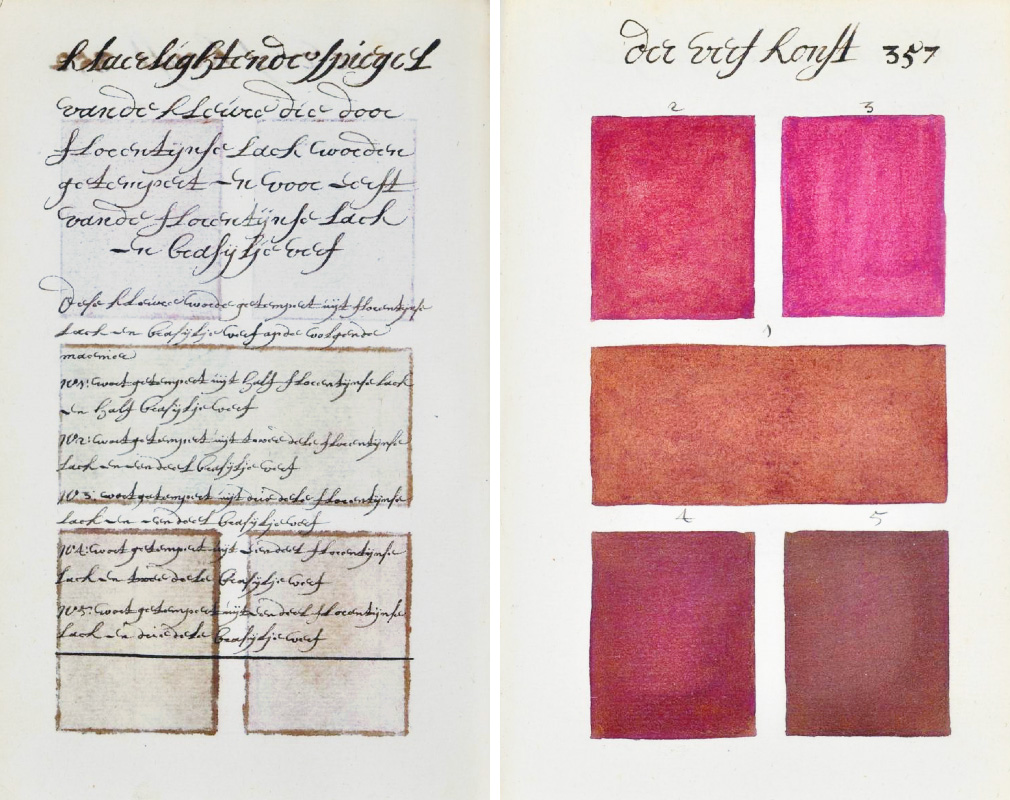 klaerlightende spiegel
vande kleure die door
florentijnse lack worden
getempert en voor eerst
vande florentijnse lack
en brasijlje verf
dese kleure worde getempert uijt florentijnse
lack en brasijlje verf op de volgende
manier
No1: wort getempert uijt half florentijnse lack
en half brasijlje verf
No2: wort getempert uijt twee dele florentijnse
lack en een deel brasijlje verf
No3: wort getempert uijt drie dele florentijnse
lack en een deel brasijlje verf
No4: wort getempert uijt een deel florentijnse
lack en twee dele brasijlje verf
No5: wort getempert uijt een deel florentijnse
lack en drie dele brasijlje verf
der verf konst 357
2 3
1
4 5